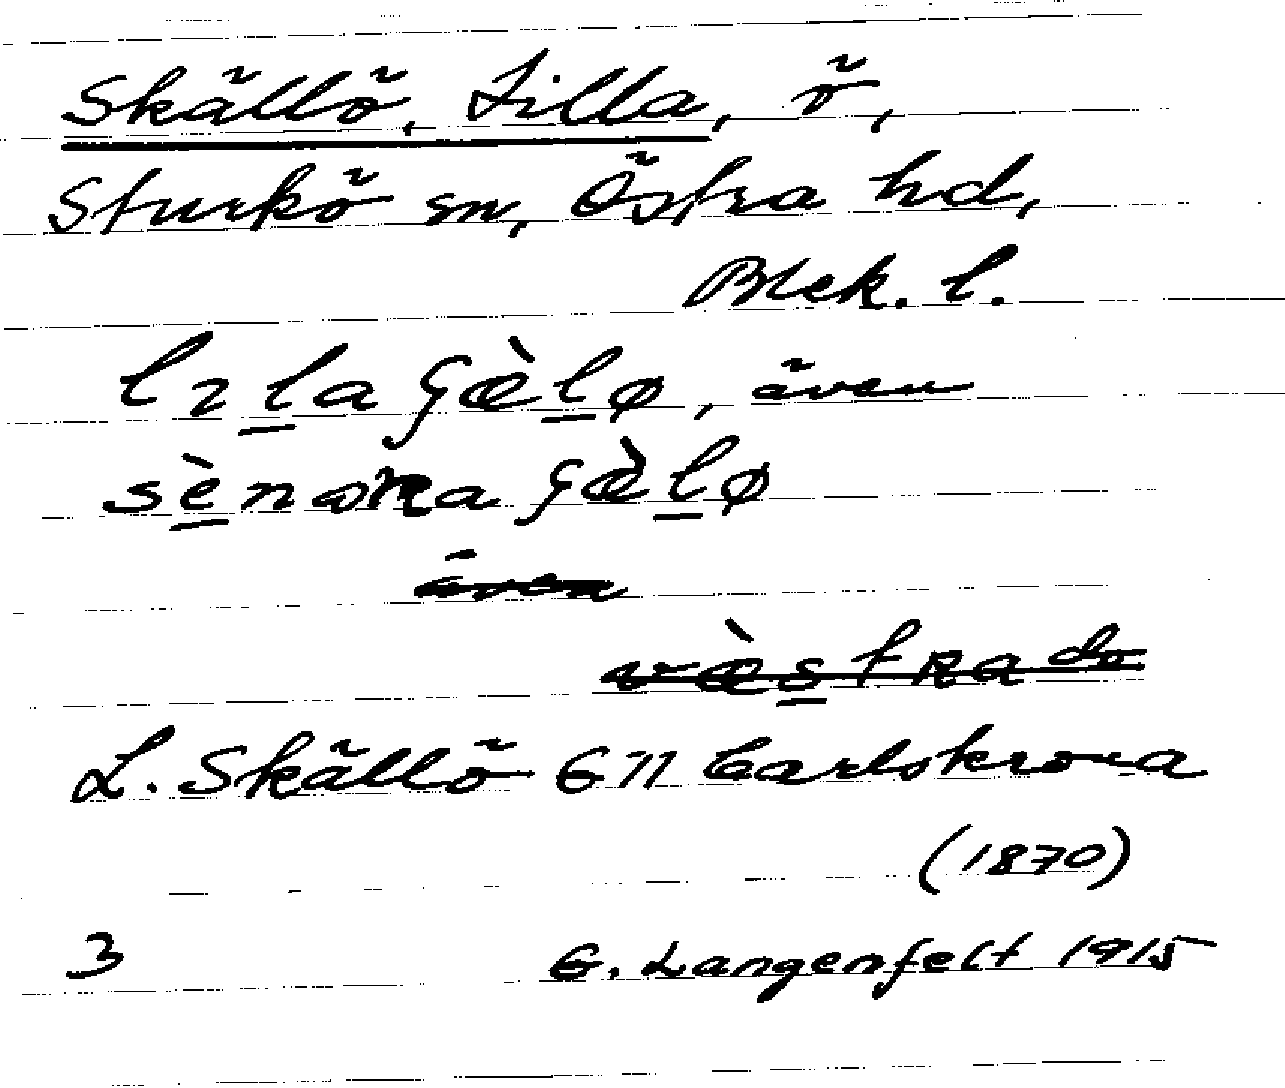 Skällö, Lilla, ö,
Sturkö sn, Östra hd,
Blek. l.
lɿla ʃæ̀lø, även
sènɷʀa ʃæ̀lø
även
væ̀stʀa do
L. Skällö GK Carlskrona
(1870)
3 G. Langenfelt 1915